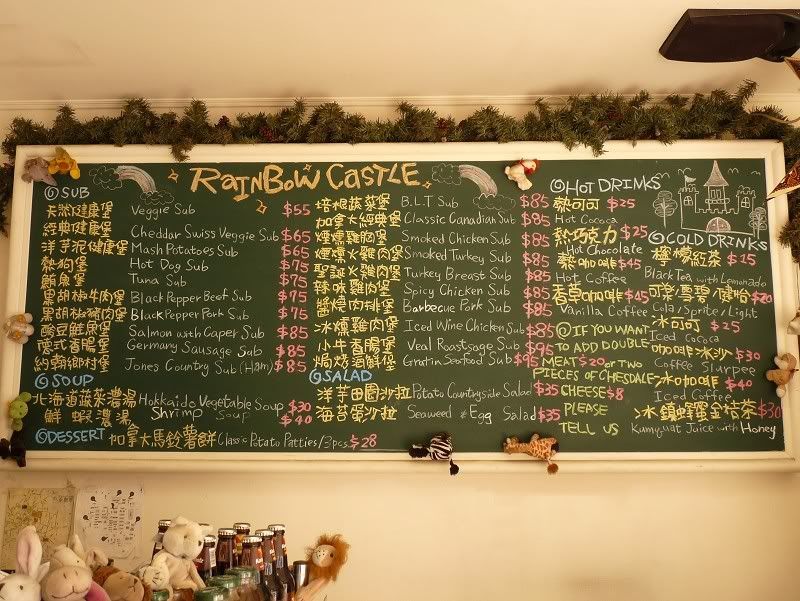 RAINBOW CASTLE
SUB
卡滋健康堡 Veggie Sub $55
經典健康堡 Cheddar Swiss Veggie Sub $65
洋芋泥健康堡 Mash Potatoes Sub $65
熱狗堡 Hot Dog Sub $75
鮪魚堡 Tuna Sub $75
黑胡椒牛肉堡 Black Pepper Beef Sub $75
黑胡椒豬肉堡 Black Pepper Pork Sub $75
酸豆鮭魚堡 Salmon with Caper Sub $85
德式香腸堡 Germany Sausage Sub $85
約翰鄉村堡 Jones Country Sub (Ham) $85
SOUP
北海道蔬菜濃湯 Hokkaido Vegetable Soup $30
鮮蝦濃湯 Shrimp Soup $40
DESSERT 加拿大馬鈴薯餅 Classic Potato Patties/3pcs. $28
培根蔬菜堡 B.L.T Sub $85
加拿大經典堡 Classic Canadian Sub $85
煙燻雞胸堡 Smoked Chicken Sub $85
煙燻火雞肉堡 Smoked Turkey Sub $85
聖誕火雞肉堡 Turkey Breast Sub $85
辣味雞肉堡 Spicy Chicken Sub $85
醬燒肉排堡 Barbecue Pork Sub $85
冰燻雞肉堡 Iced Wine Chicken Sub $85
小牛香腸堡 Veal Roastsage Sub $95
焗烤海鮮堡 Gratin Seafood Sub $95
SALAD
洋芋田園沙拉 Potato Countryside Salad $35
海苔蛋沙拉 Seaweed & Egg Salad $35
HOT DRINKS
熱可可 $25
Hot Cococa
熱巧克力 $25
Hot Chocolate
熱咖啡 $45
Hot Coffee
香草咖啡 $45
Vanilla Coffee
IF YOU WANT
TO ADD DOUBLE
MEAT $20 or TWO
PIECES OF CHESDALE
CHEESE $8
PLEASE
TELL US
COLD DRINKS
檸檬紅茶 $25
Black Tea with Lemonado
可樂/雪碧/健怡 $20
Cola/Sprite/Light
冰可可 $25
Iced Cococa
咖啡冰沙 $30
Coffee Slurpee
冰咖啡 $40
Iced Coffee
冰鎮蜂蜜金桔茶 $30
Kumquat Juice with Honey